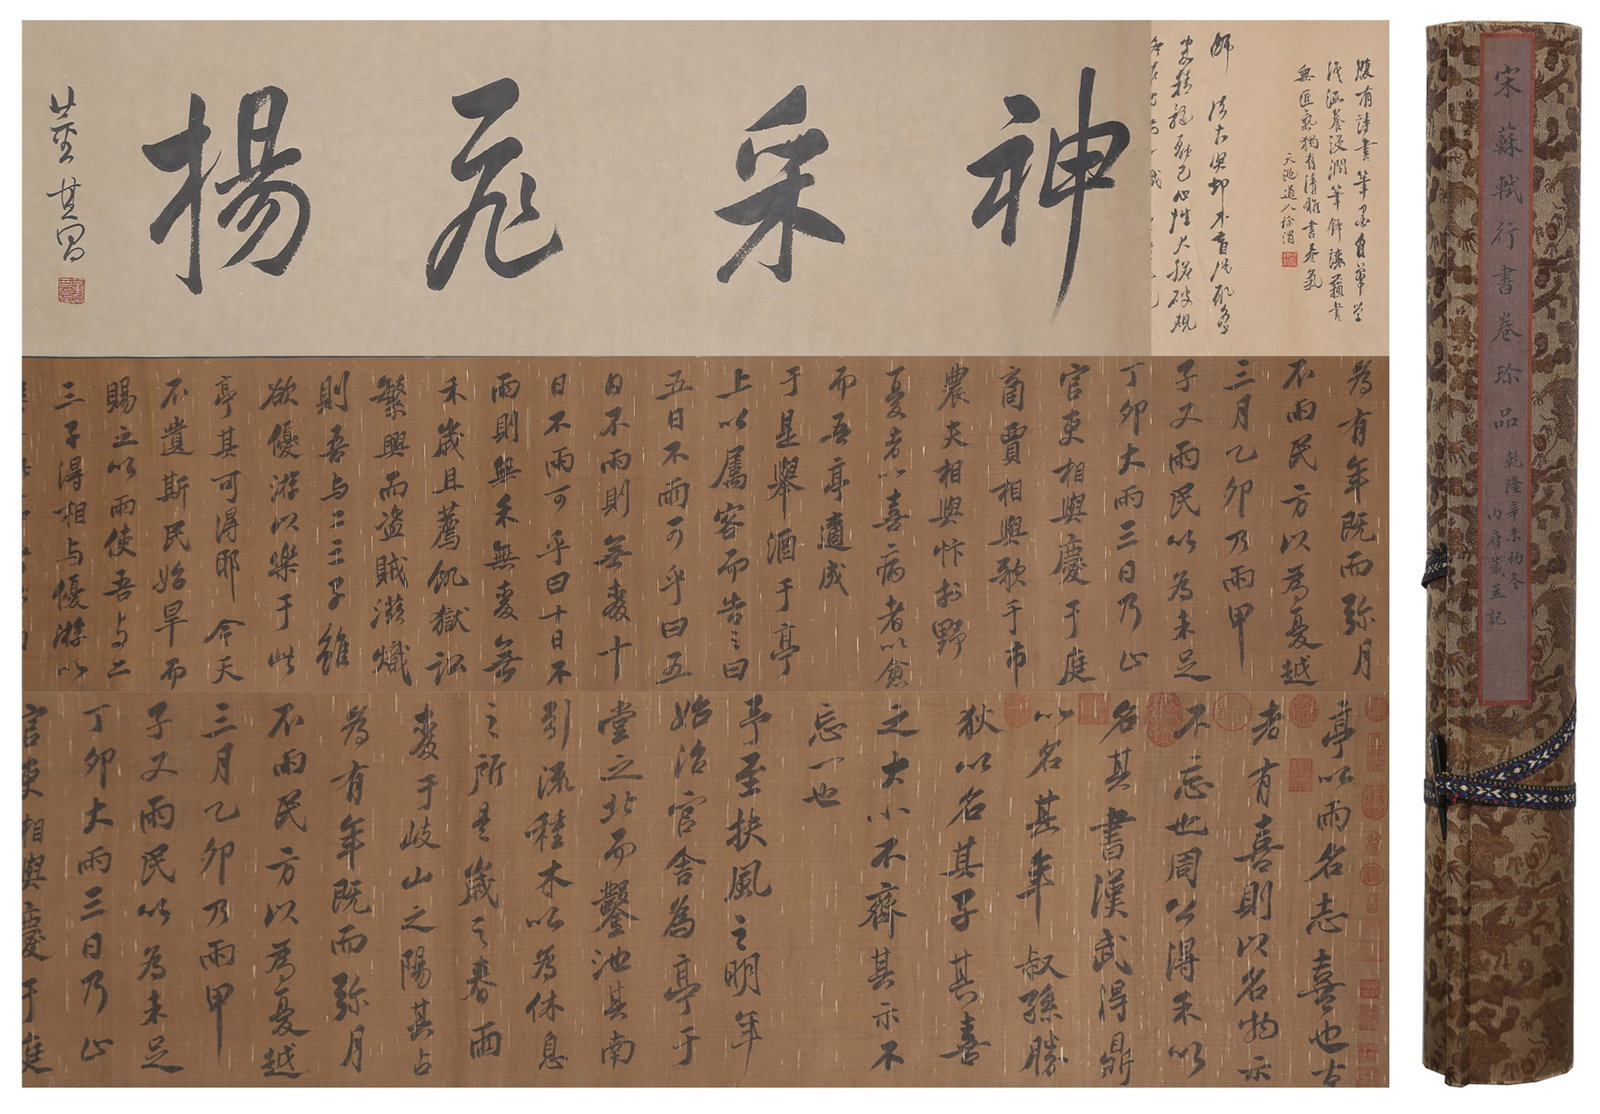 腹有詩書筆墨自華学
深涵養浸潤筆鋒讀蘇書
無匠氣猶有清雅書卷氣
天池道人徐渭
神采飛揚
董其昌
為有年既而弥月
不雨民方以為憂越
三月乙卯乃雨甲
子又雨民以為未足
丁卯大雨三日乃止
官吏相與慶于庭
商賈相與歌于市
農夫相與忭於野
憂者以喜病者以愈
而吾亭適成
于是舉酒于亭
上以屬客而告之曰
五日不雨可乎曰五
日不雨則無麥十
日不雨可乎曰十日不
雨則無禾無麥無
禾歲且薦飢獄訟
繁興而盜賊滋熾
則吾与二三子雖
欲優游以樂于此
亭其可得耶今天
不遺斯民始旱而
賜之以雨使吾与二
三子得相与優游以
亭以雨名志喜也古
者有喜則以名物示
不忘也周公得禾以
名其書漢武得鼎
以名其年叔孫勝
狄以名其子其喜
之大小不齊其示不
忘一也
予至扶風之明年
始治官舍為亭于
堂之北而鑿池其南
引流種木以為休息
之所是歲之春雨
麥于岐山之陽其占
為有年既而弥月
不雨民方以為憂越
三月乙卯乃雨甲
子又雨民以為未足
丁卯大雨三日乃止
官吏相與慶于庭
宋蘇軾行書卷珍品
乾隆辛未初冬
內府藏並記